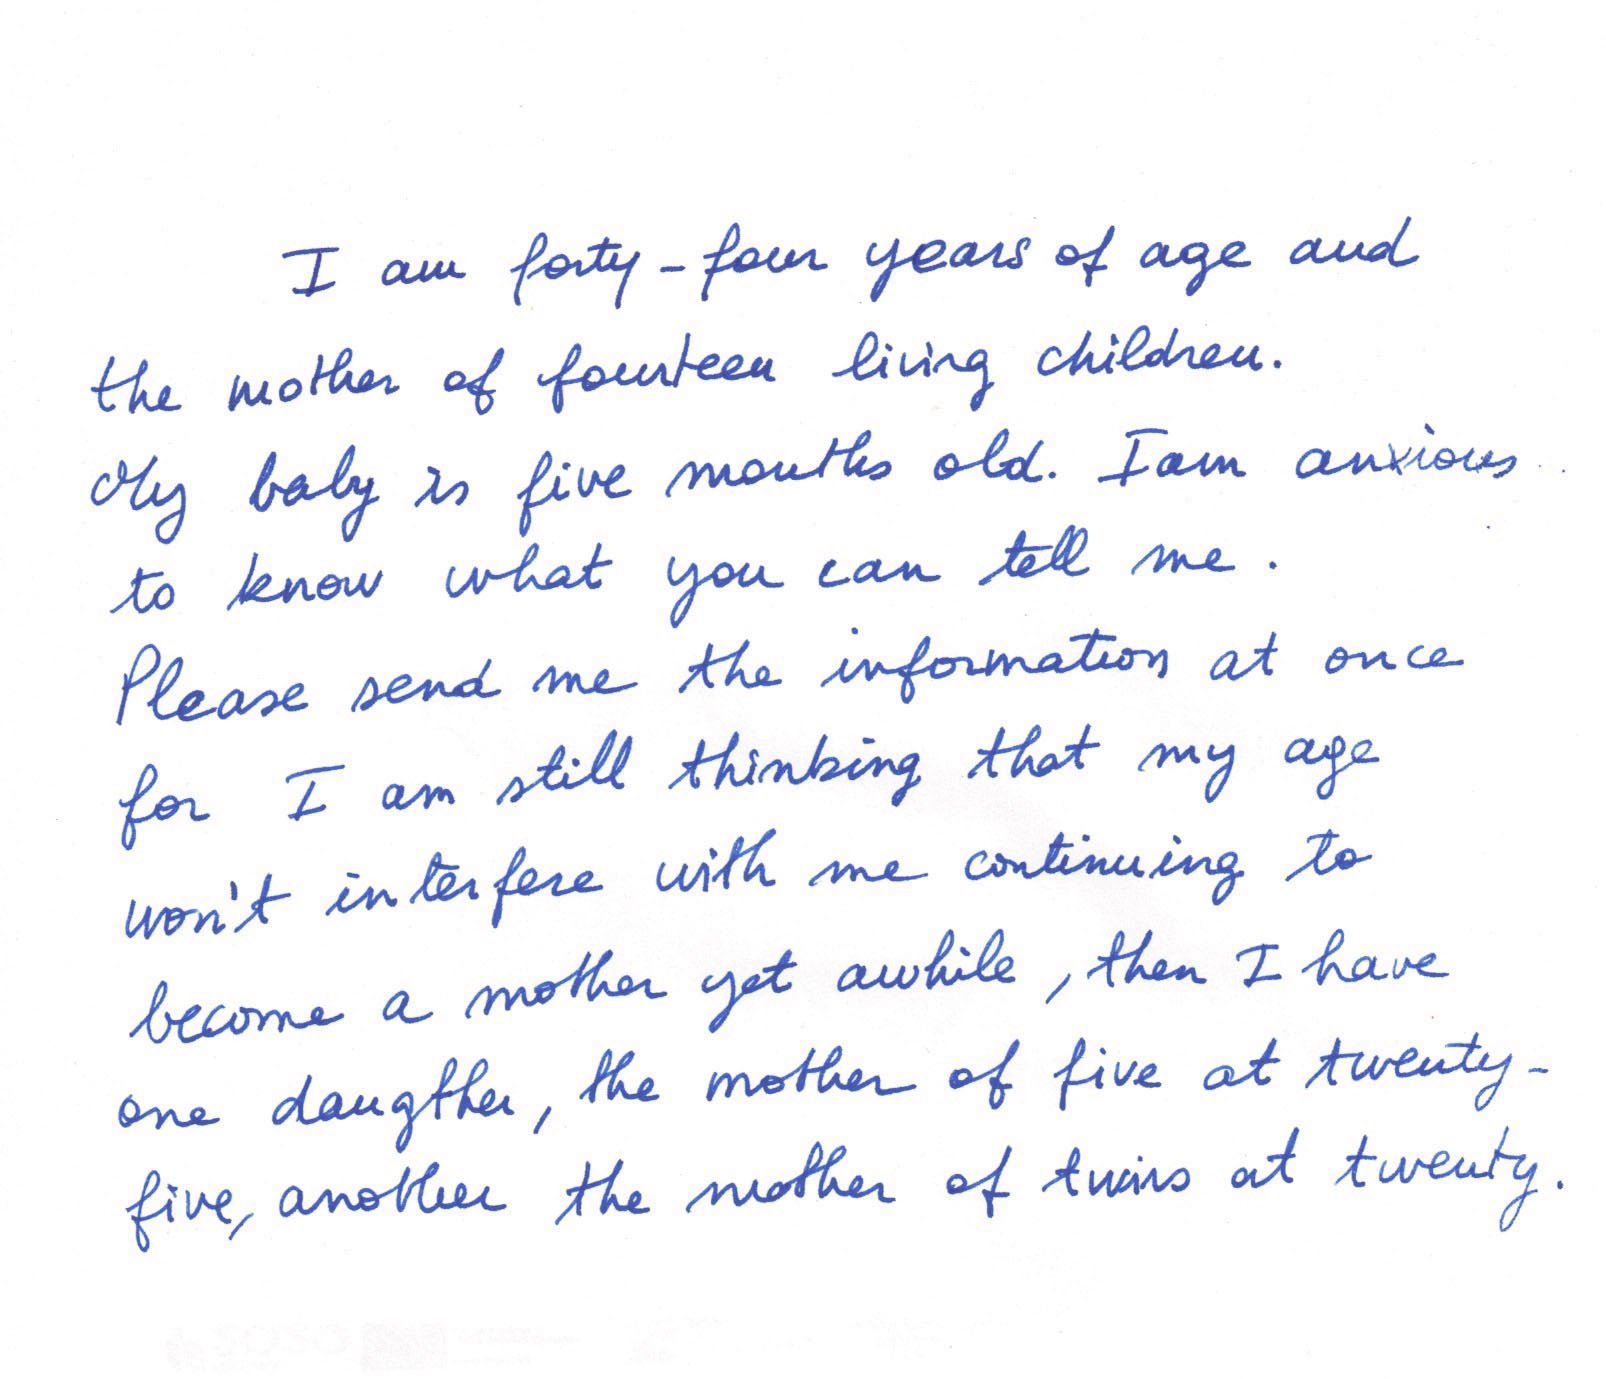 I am forty-four years of age and
the mother of fourteen living children.
My baby is five months old. I am anxious
to know what you can tell me.
Please send me the information at once
for I am still thinking that my age
won't interfere with me continuing to
become a mother yet awhile, then I have
one daugther, the mother of five at twenty-
five, another the mother of twins at twenty.